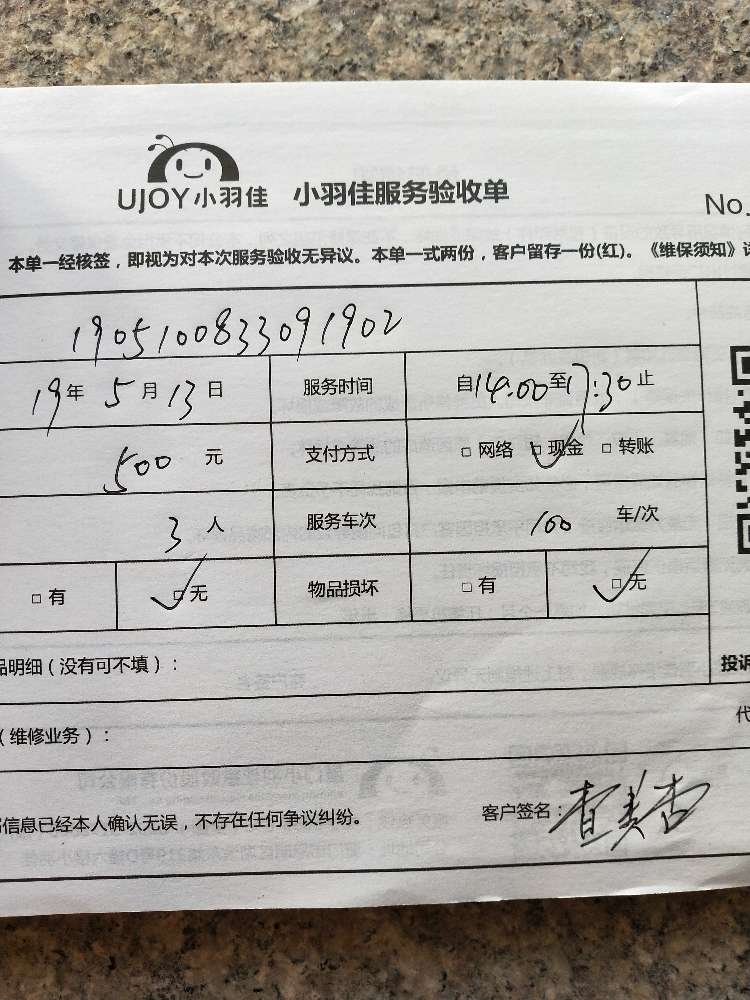 UJOY小羽佳 小羽佳服务验收单
No.
本单一经核签，即视为对本次服务验收无异议。本单一式两份，客户留存一份(红)。《维保须知》
190510083309190​2
19年5月13日 服务时间 自14:00至17:30止
500元 支付方式 □网络 ☑现金 □转账
3人 服务车次 100 车/次
□有 ☑无 物品损坏 □有 ☑无
品明细（没有可不填）： 投诉
（维修业务）： 代
信息已经本人确认无误，不存在任何争议纠纷。 客户签名：查美杏